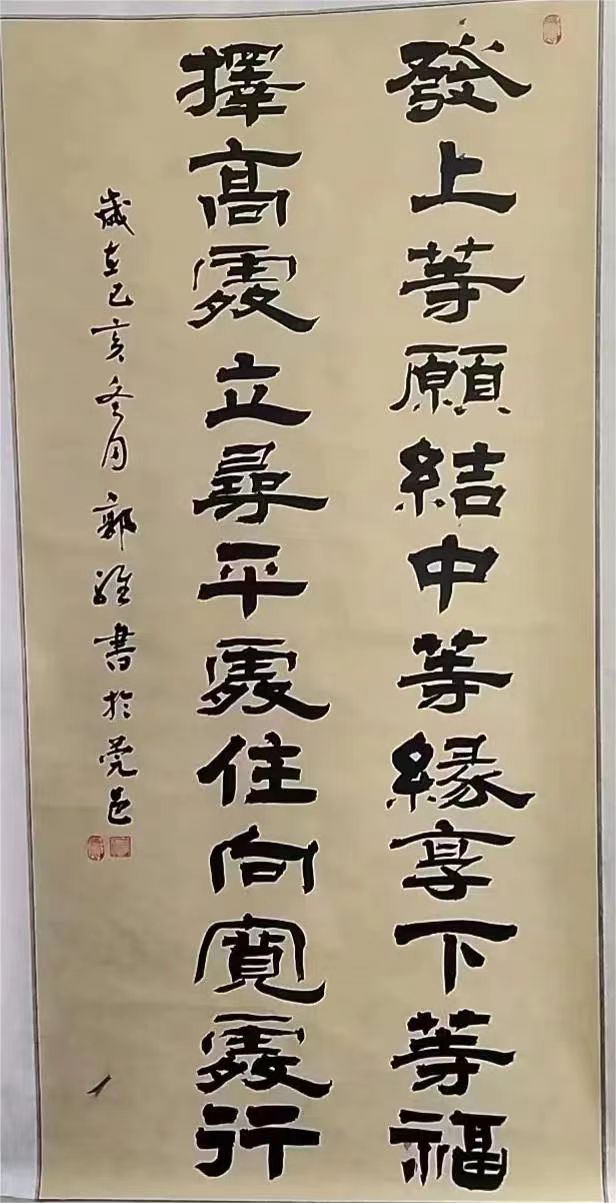 發上等願結中等緣享下等福
擇高處立尋平處住向寬處行
歲在己亥冬月郭雄書於莞邑